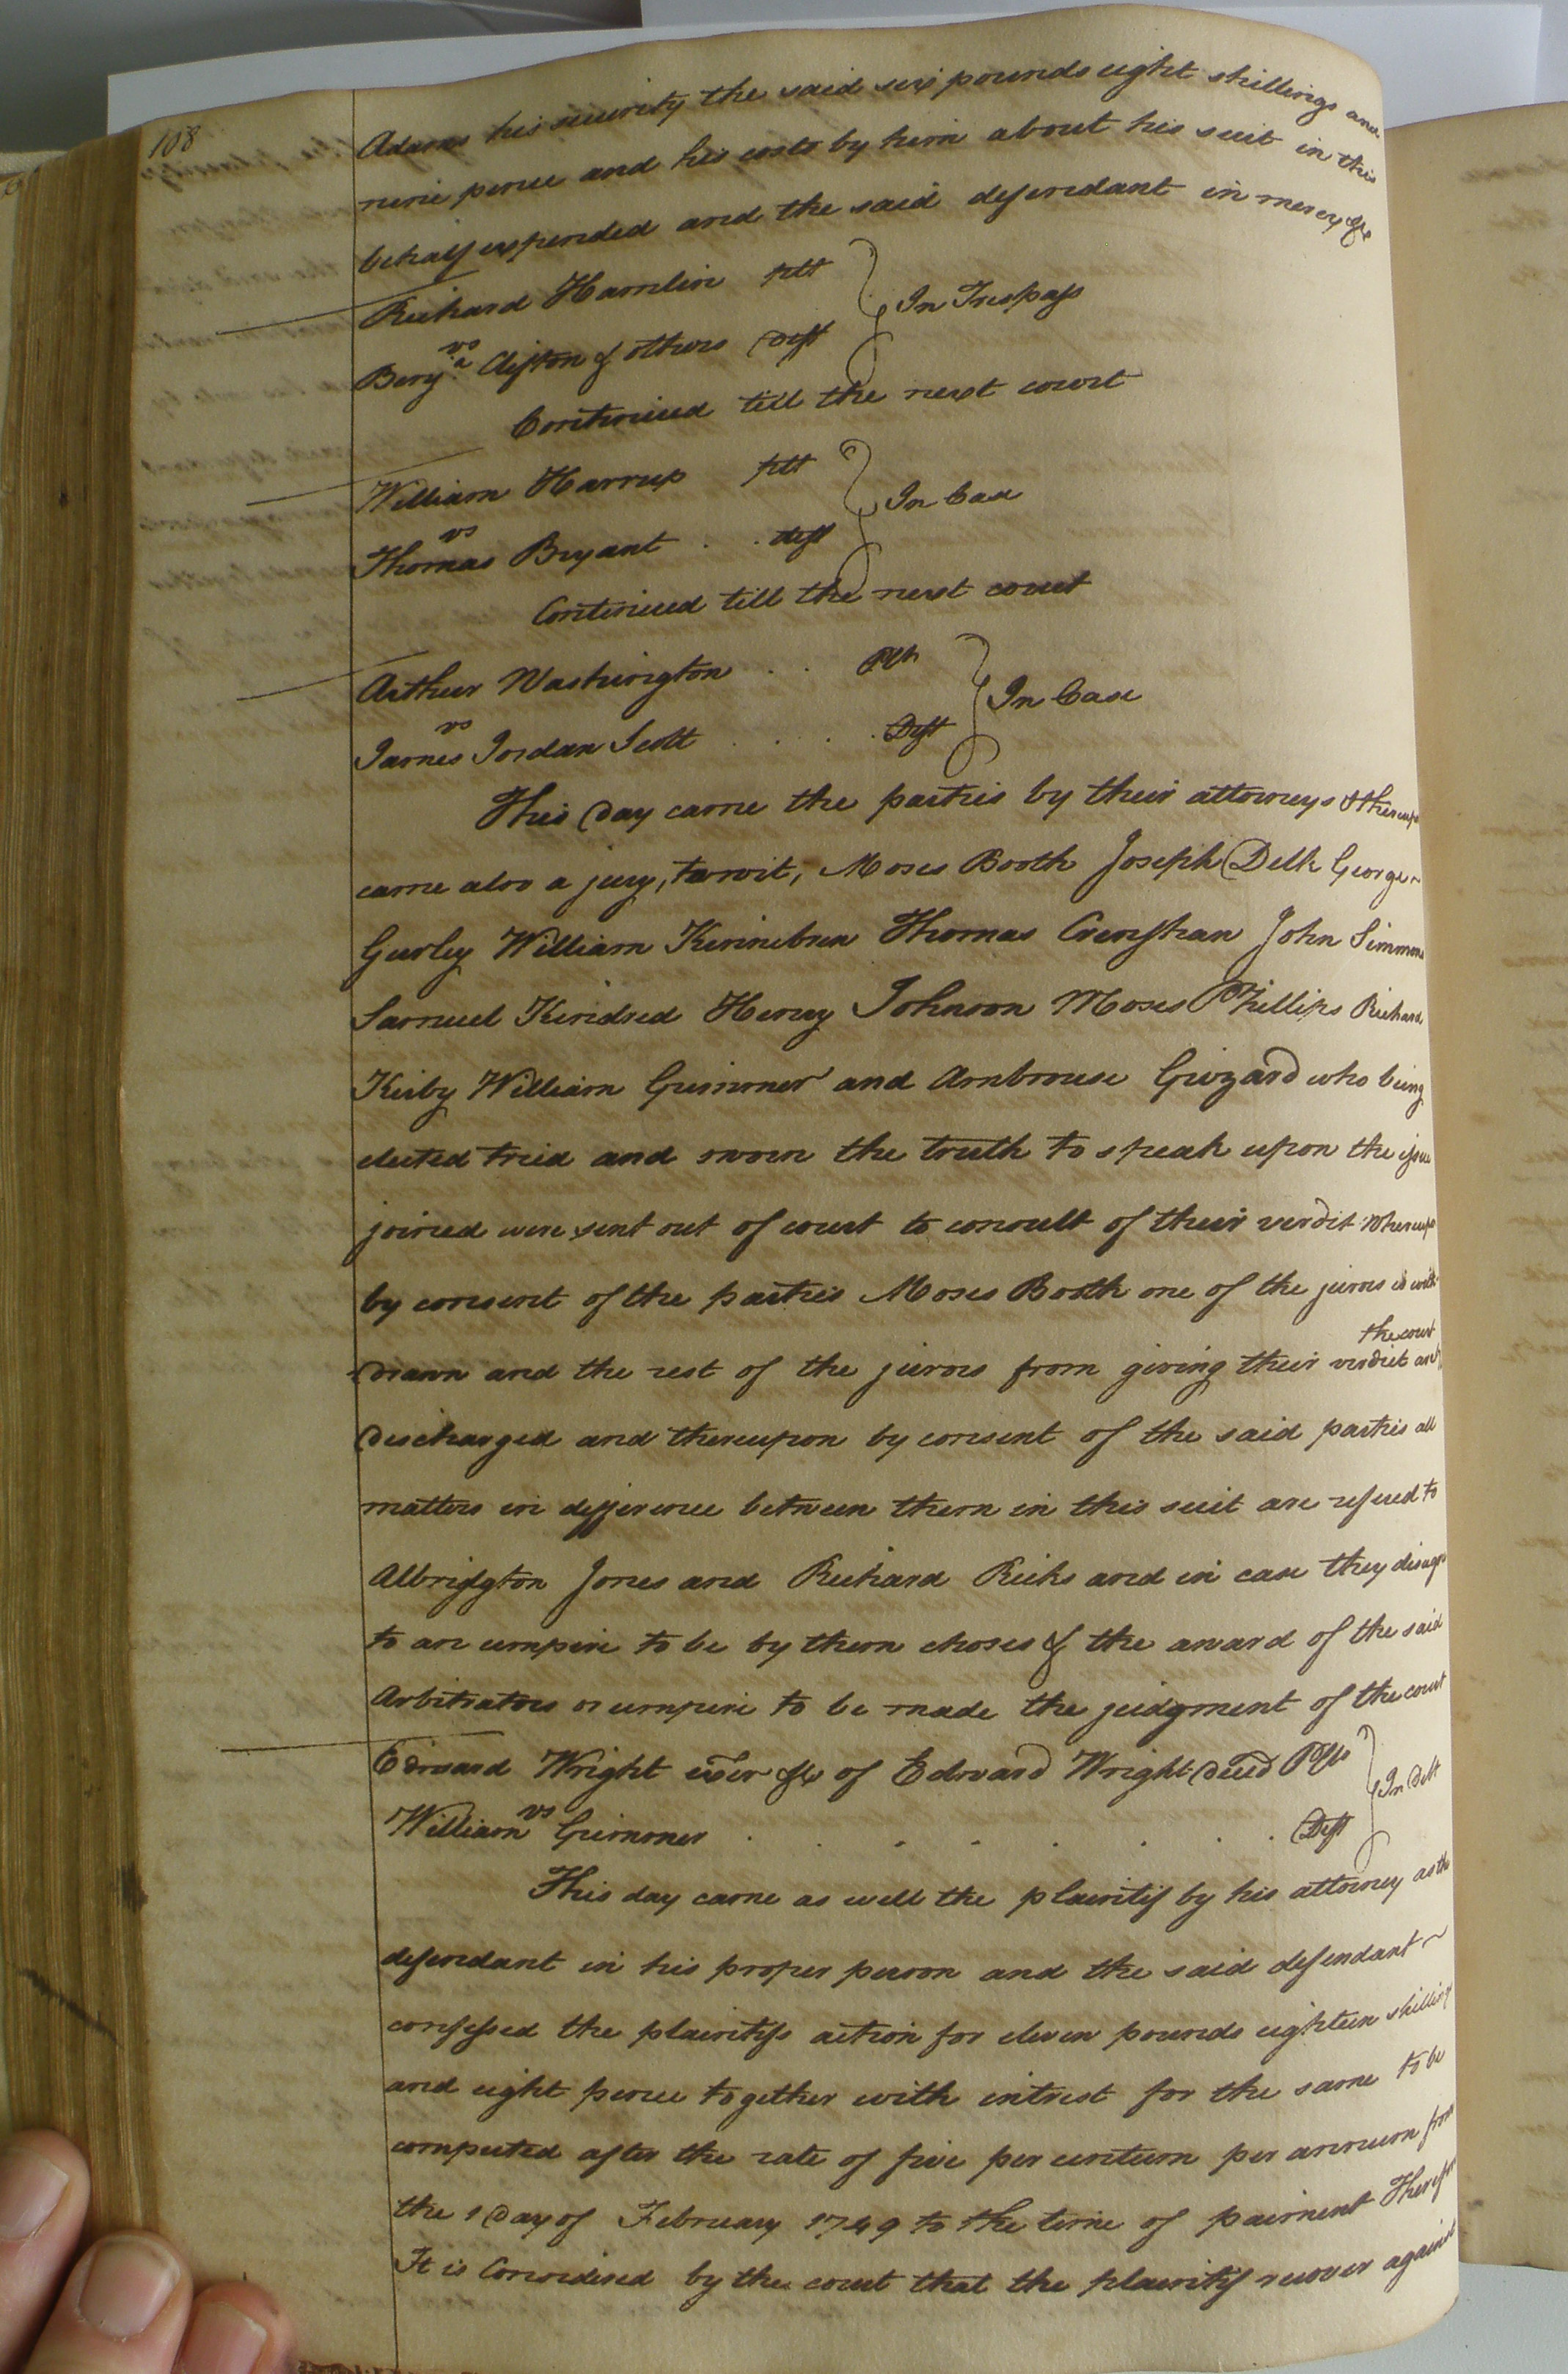 108
Adams his security the said six pounds eight shillings and
nine pence and his costs by him about his suit in this
behalf expended and the said defendant in mercy &c
Richard Hamlin plt
vs
In Trespass
Benja Clifton & others Deft
Continued till the next court
William Harrup plt
vs
In Case
Thomas Bryant . . deft
Continued till the next court
Arthur Washington . . Plt
vs
In Case
James Jordan Scott . . . . Deft
This Day came the parties by their attorneys & thereupo
came also a jury, towit, Moses Booth Joseph Delk George
Gurley William Kinnebrun Thomas Crenshan John Simmons
Samuel Kindred Henry Johnson Moses Phillips Richard
Kirby William Grimmer and Ambrouse Grizard who being
elected tried and sworn the truth to speak upon the issue
joined were sent out of court to consult of their verdit whereupo
by consent of the parties Moses Booth one of the jurors is with
the court
drawn and the rest of the jurors from giving their verdict are
Discharged and thereupon by consent of the said parties all
matters in difference between them in this suit are refered to
Albridgton Jones and Richard Ricks and in case they disagr
to an umpire to be by them choses & the award of the said
Arbitrators or umpire to be made the judgment of the court
Edward Wright exer &c of Edward Wright Deced Plt
vs
In Debt
William Grimmer . . . . . . . Deft
This day came as well the plaintif by his attorney as the
defendant in his proper person and the said defendant
confessed the plaintifs action for eleven pounds eighteen shillings
and eight pence together with intrest for the same to be
computed after the rate of five per centum per annum from
the 1 Day of February 1749 to the time of paiment Therefore
It is Considered by the court that the plaintif recover against